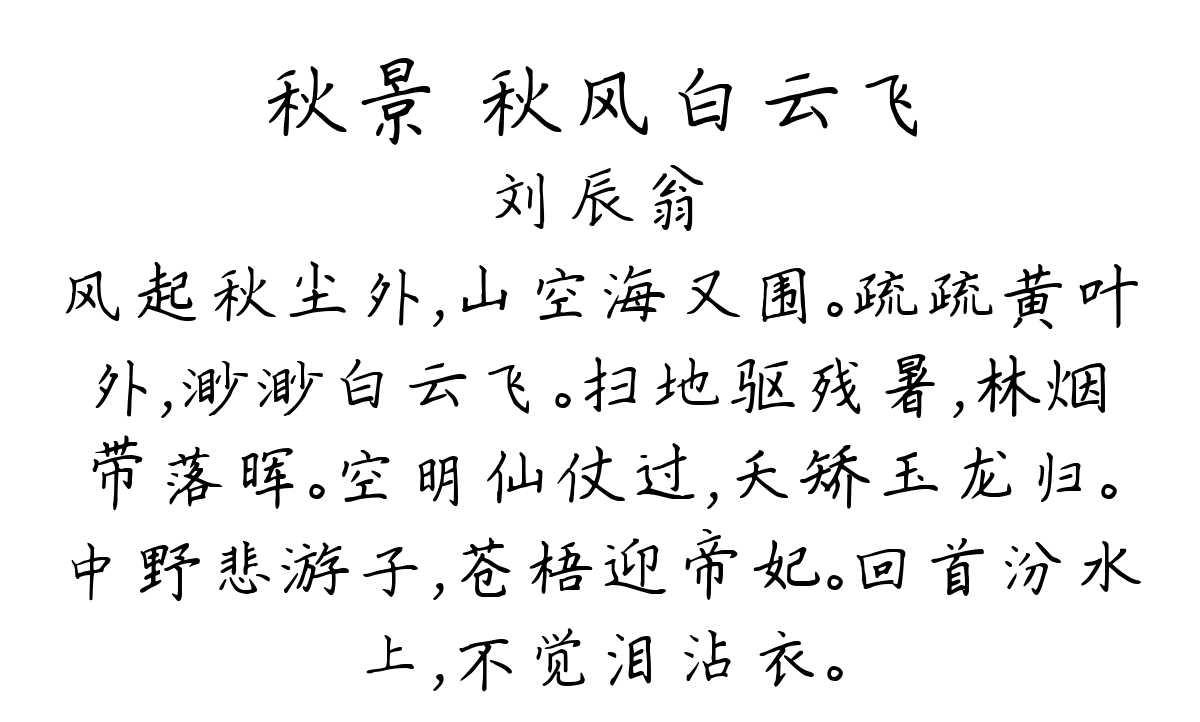 秋景 秋风白云飞
刘辰翁
风起秋尘外,山空海又围。疏疏黄叶
外,渺渺白云飞。扫地驱残暑,林烟
带落晖。空明仙仗过,夭矫玉龙归。
中野悲游子,苍梧迎帝妃。回首汾水
上,不觉泪沾衣。